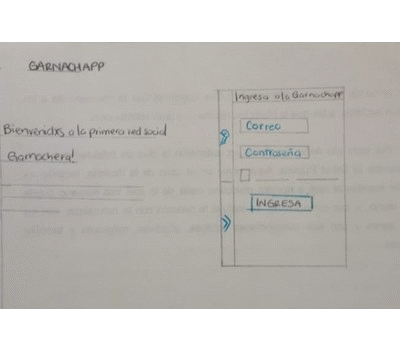 GARNACHAPP
Bienvenidxs, a la primera red social
Garnachera!
Ingresa a la Garnachapp
Correo
Contraseña
INGRESA